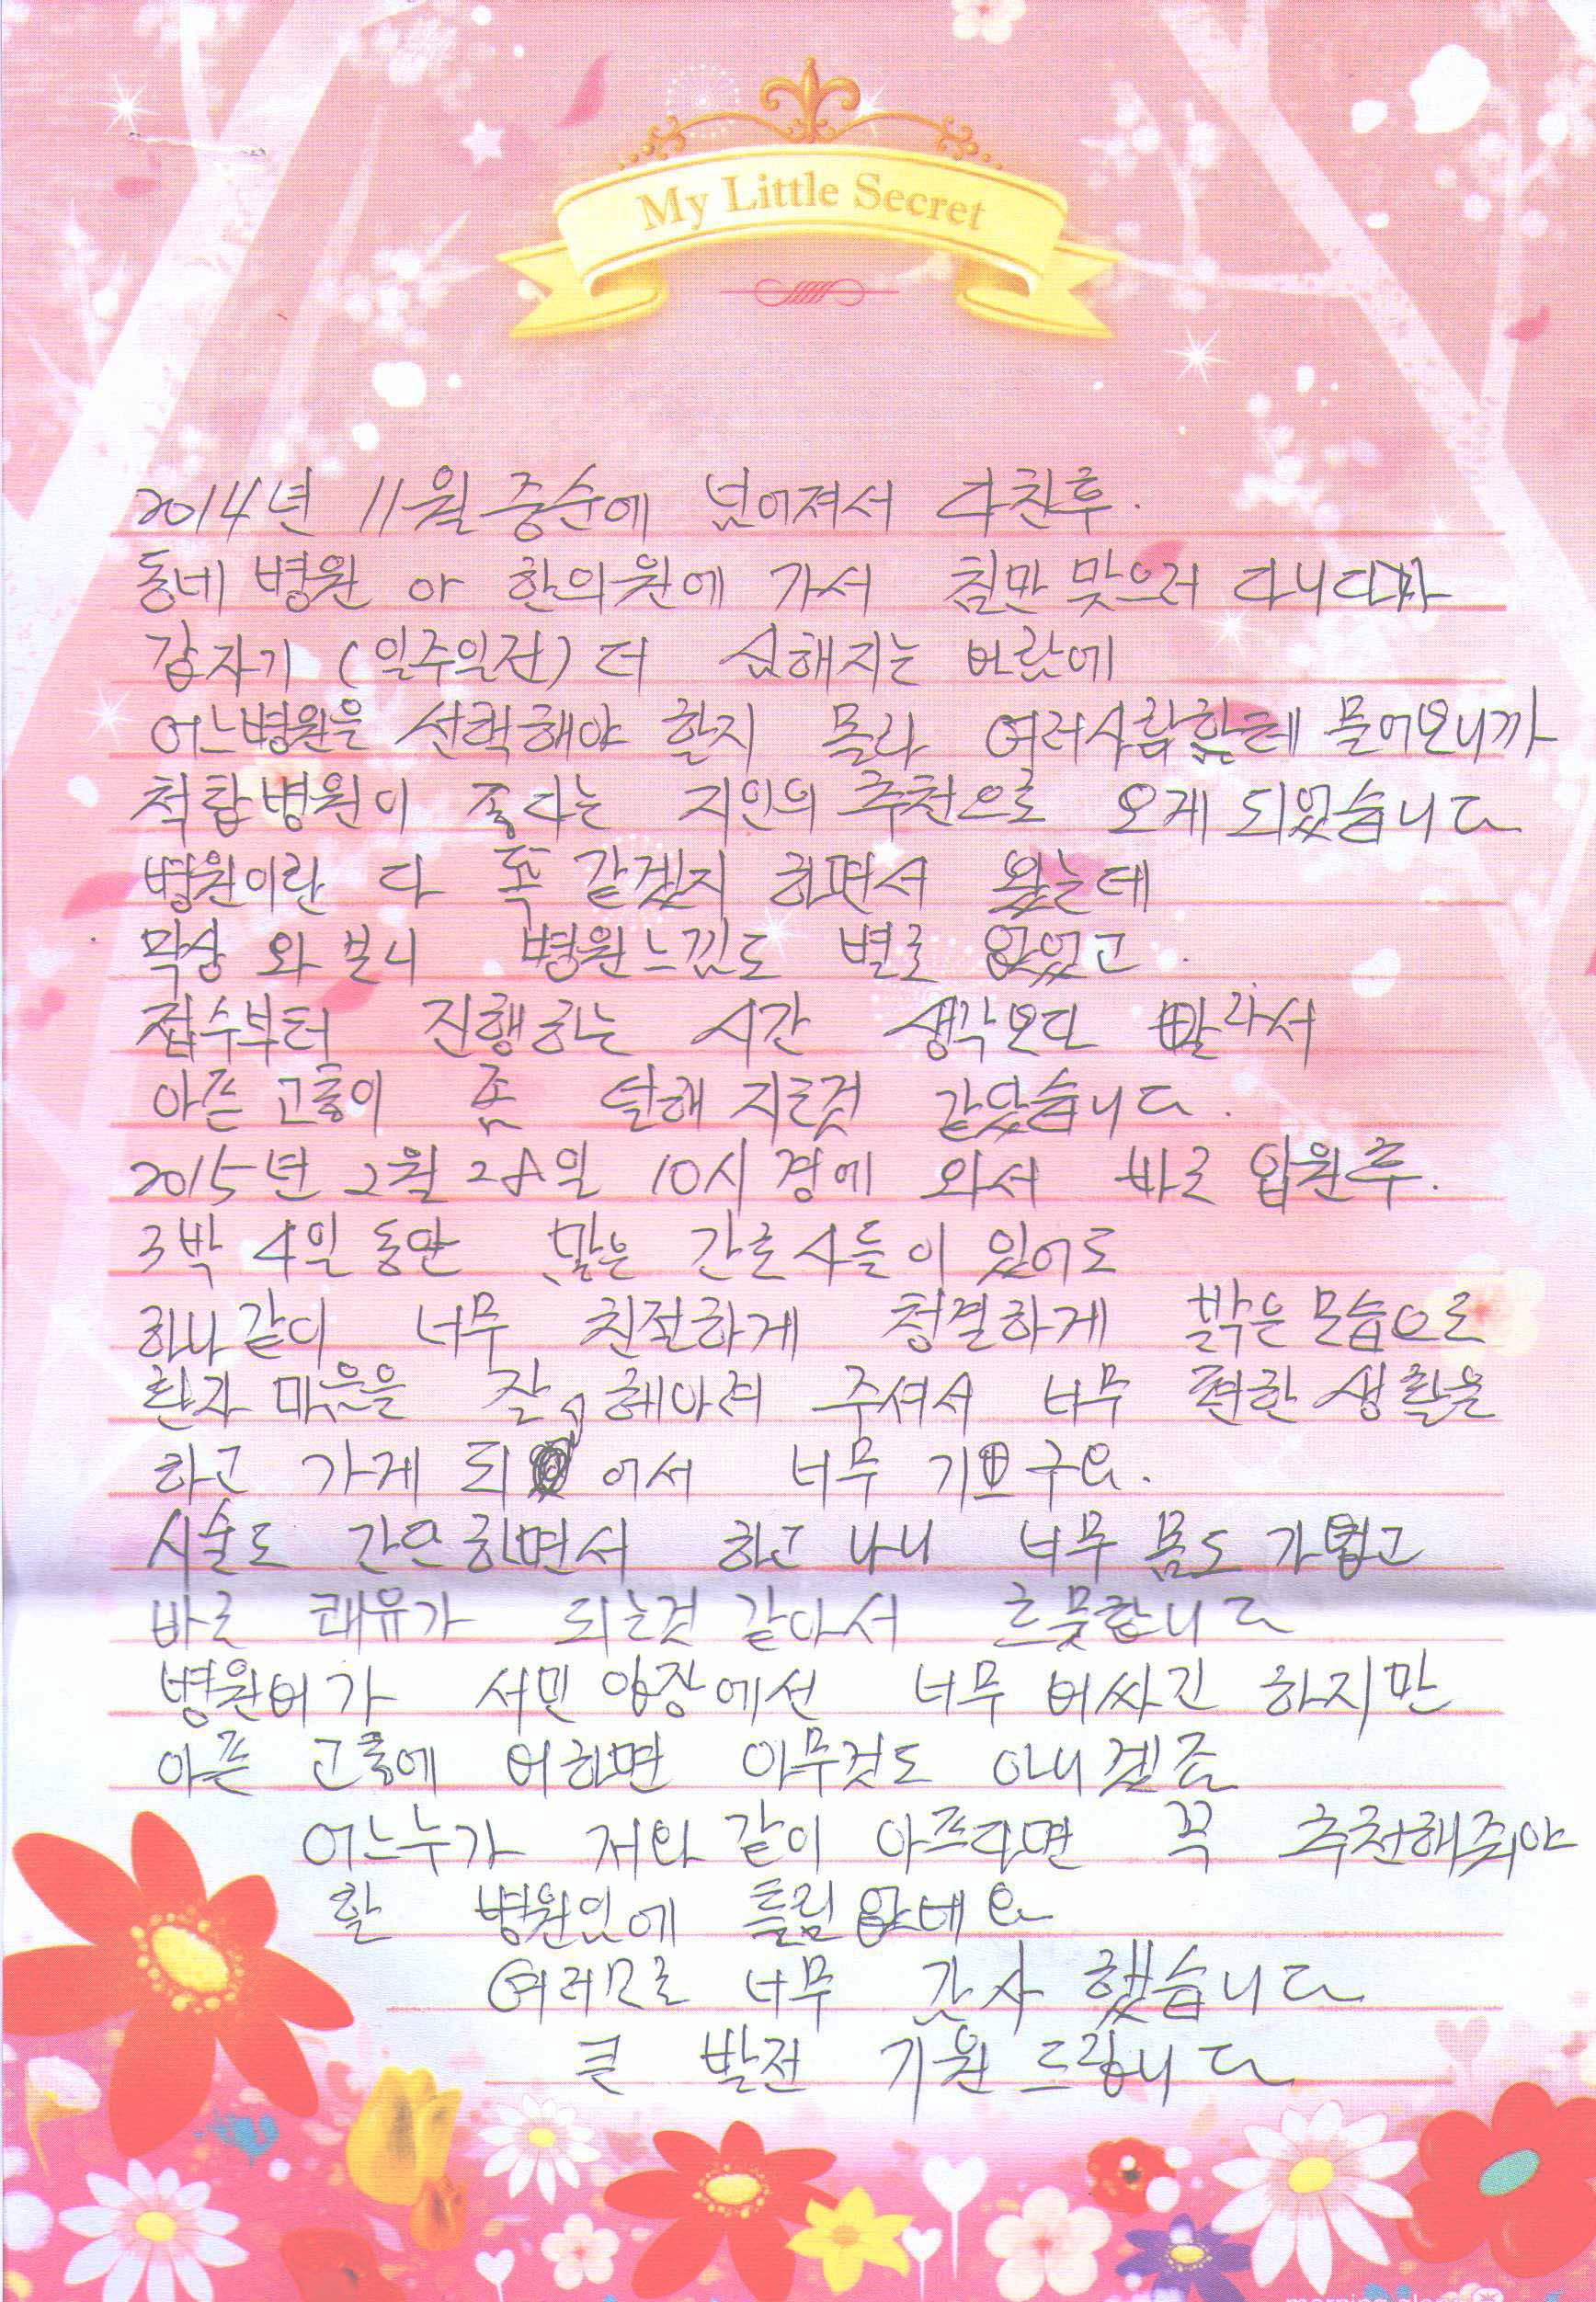 My Little Secret
2014년 11월 중순에 넘어져서 다친후.
동네 병원 아 한의원에 가서 침만 맞으러 다니다가
갑자기 (일주일전) 더 심해지는 바람에
어느병원을 선택해야 할지 몰라 여러사람한테 물어보니까
척탑병원이 좋다는 지인의 추천으로 오게 되었습니다
병원이란 다 똑 같겠지 하면서 왔는데
막상 와 보니 병원느낌도 별로 없었고.
접수부터 진행하는 시간 생각보다 빨라서
아픈 고통이 좀 덜해 지는것 같았습니다.
2015년 2월 28일 10시 경에 와서 바로 입원후.
3박 4일 동안 많은 간호사들이 있어도
하나같이 너무 친절하게 청결하게 밝은 모습으로
환자 마음을 잘 헤아려 주셔서 너무 편한 생활을
하고 가게 되어서 너무 기쁘구요.
시술도 간단하면서 하고 나니 너무 몸도 가볍고
바로 쾌유가 되는것 같아서 흐뭇합니다
병원비가 서민 입장에선 너무 비싸긴 하지만
아픈 고통에 비하면 아무것도 아니겠죠
어느누가 저와 같이 아프다면 꼭 추천해줘야
할 병원임에 틀림없네요
여러모로 너무 감사 했습니다
큰 발전 기원 드립니다